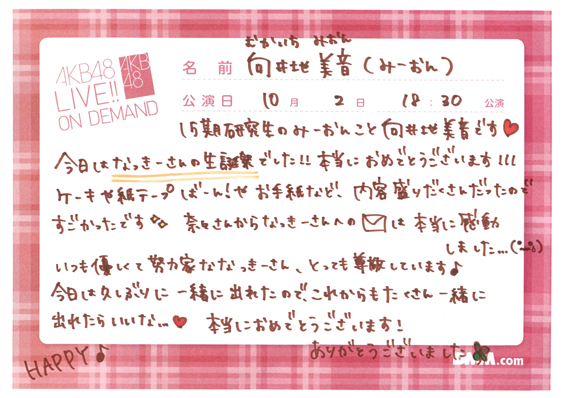 AKB48
LIVE!!
ON DEMAND
AKB
48
むかいち みおん
名前 向井地 美音 (みーおん)
公演日 10月 2日 18:30 公演
15期研究生のみーおんこと向井地美音です♥
今日はなっきーさんの生誕祭でした!!本当におめでとうございます!!!
ケーキや紙テープばーん!やお手紙など、内容盛りだくさんだったので
すごかったです✨ 奈々さんからなっきーさんへの✉は本当に感動
しました…
いつも優しくて努力家ななっきーさん、とっても尊敬しています♪
今日は久しぶりに一緒に出れたので、これからもたくさん一緒に
出れたらいいな…♥ 本当におめでとうございます!
ありがとうございました
HAPPY♪
DMM.com